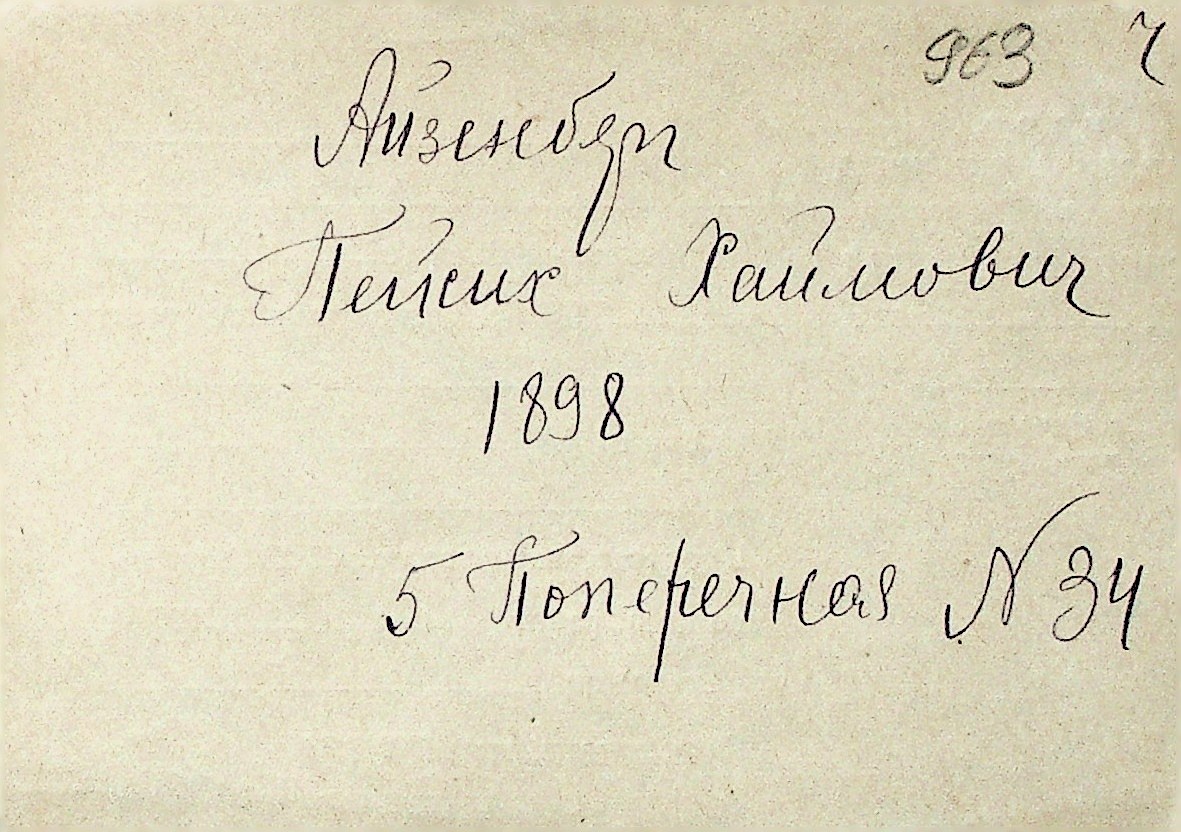 963 Ч
Айзенберг
Пейсих Хаймович
1898
5 Поперечная N 34